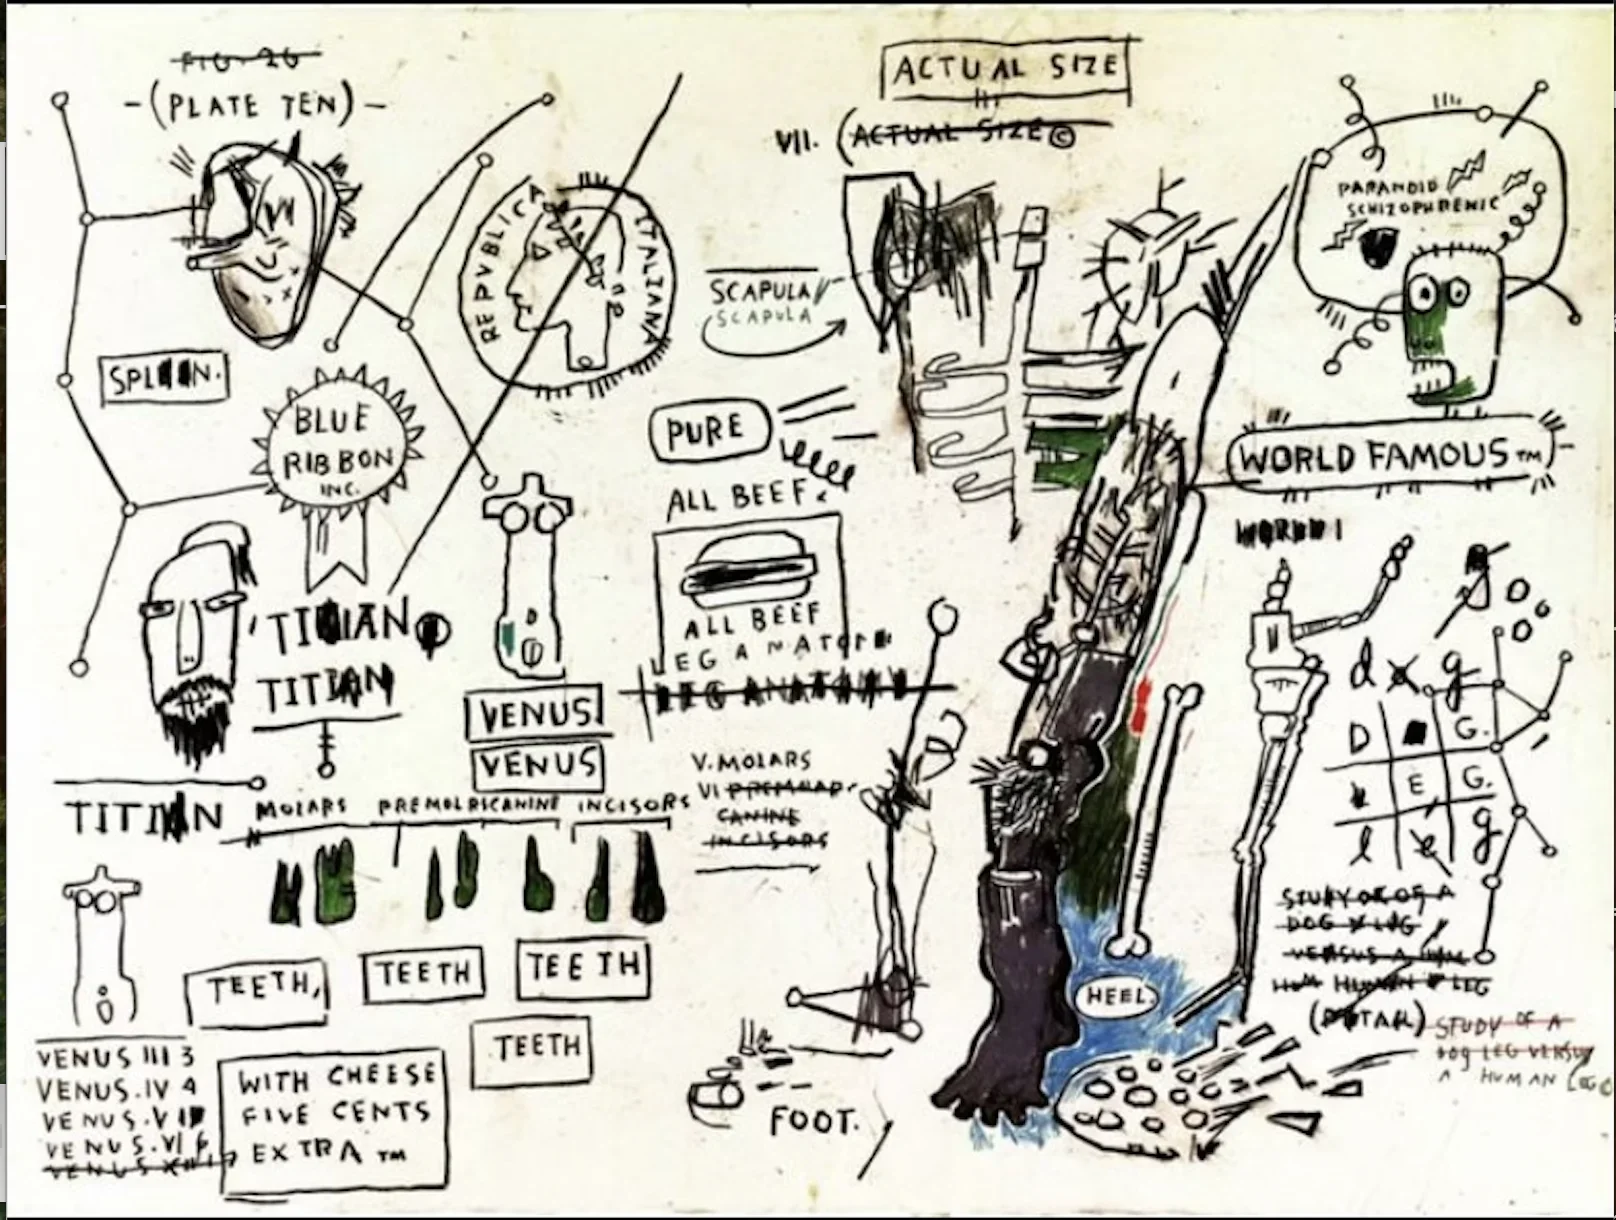 FIG. 26
-(PLATE TEN)-
ACTUAL SIZE
VII. (ACTUAL SIZE ©
PARANOID
SCHIZOPHRENIC
REPVBLICA
ITALIANA
SCAPULA
SCAPULA
SPLEEN.
BLUE
RIBBON
INC.
PURE
ALL BEEF.
WORLD FAMOUS™
ALL BEEF
LEG ANATOMY
LEG ANATOMY
TITIAN
TITIAN
TITIAN
VENUS
VENUS
MOLARS
INCISORS
V. MOLARS
VI
CANINE
INCISORS
d x g
D G.
E G.
l e g
STUDY OF OF A
DOG LEG
VERSUS A HUM
HUM HUMAN LEG
(DETAIL)
STUDY OF A
DOG LEG VERSUS
A HUMAN LEG©
TEETH,
TEETH
TEETH
TEETH
HEEL.
FOOT.
VENUS III 3
VENUS. IV 4
VENUS. V
VENUS. VI 6
WITH CHEESE
FIVE CENTS
EXTRA ™